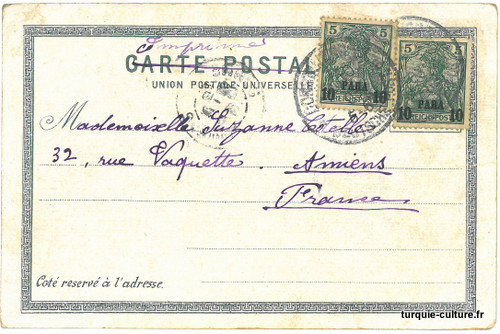 Imprimé
CARTE POSTALE
UNION POSTALE UNIVERSELLE
5 5
PARA
10 10
REICHSPOST
5 5
PARA
10 10
REICHSPOST
Mademoiselle Suzanne
32, rue Vaquette, Amiens
France
Coté reservé à l'adresse.
turquie-culture.fr